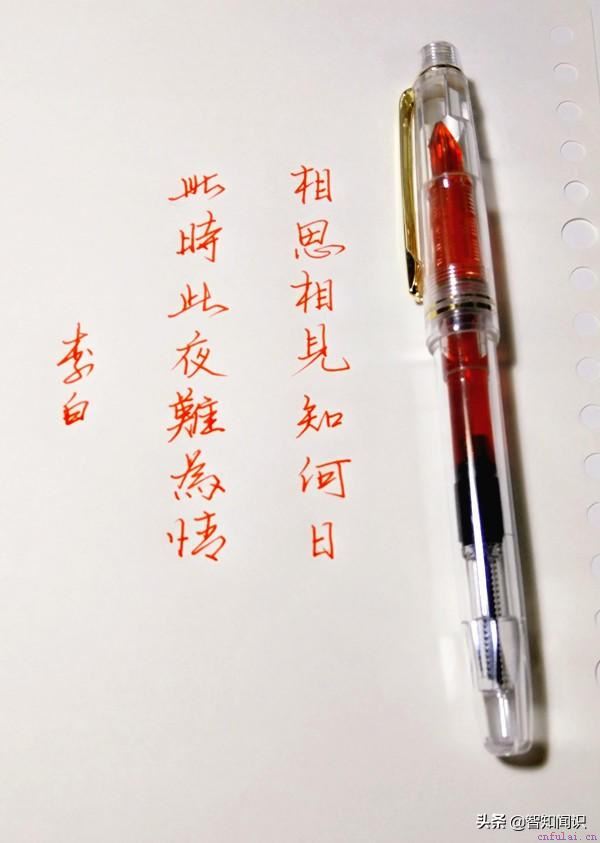 相思相見知何日
此時此夜難為情
李白
头条 @智知闻识
cnfulai.cn